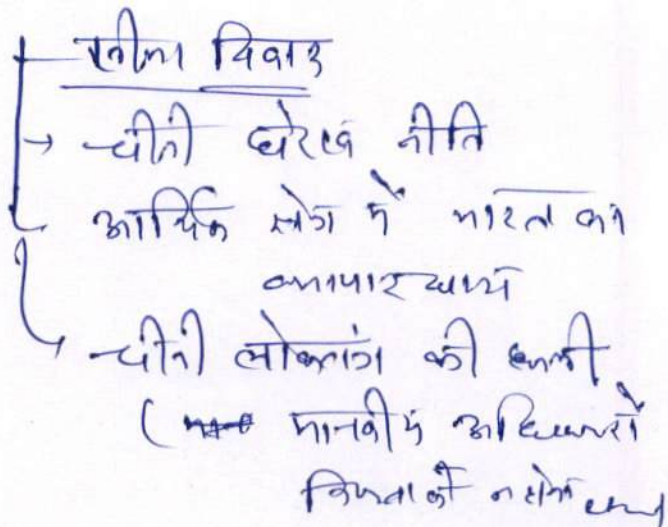 सीमा विवाद
→ चीनी घेराव नीति
आर्थिक क्षेत्र में भारत का
व्यापार घाटा
चीनी लोकतंत्र की कमी
( मानवीय अधिकारों